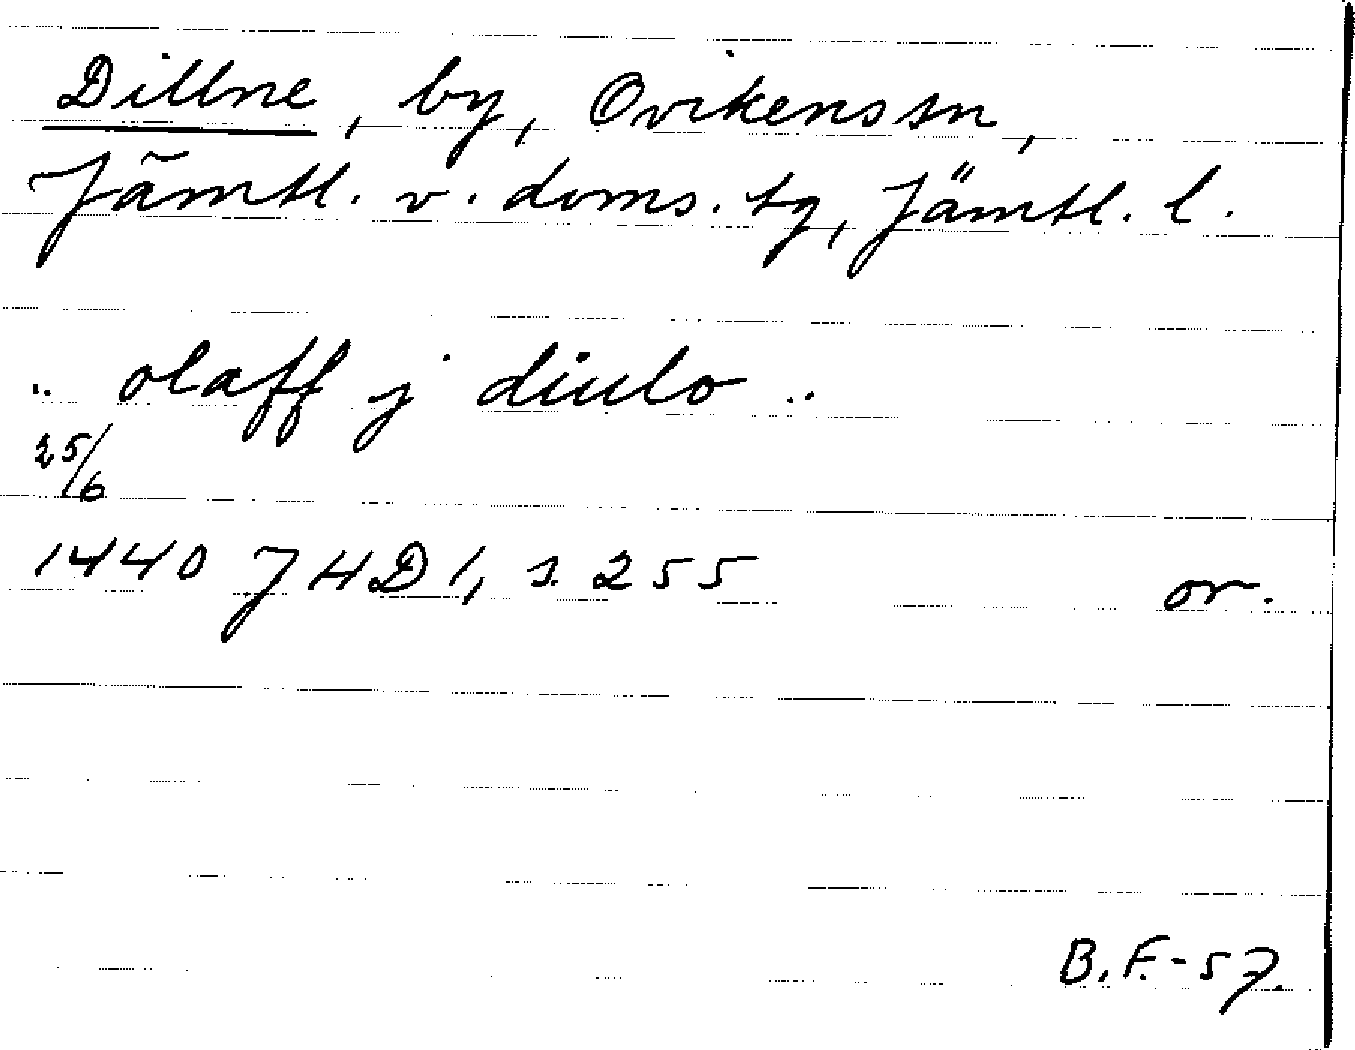 Dillne, by, Ovikens sn,
Jämtl. v. doms. tg, Jämtl. l.
.. olaff j diulo ..
25/6
1440 JHD 1, s. 255 or.
B.F.-57.